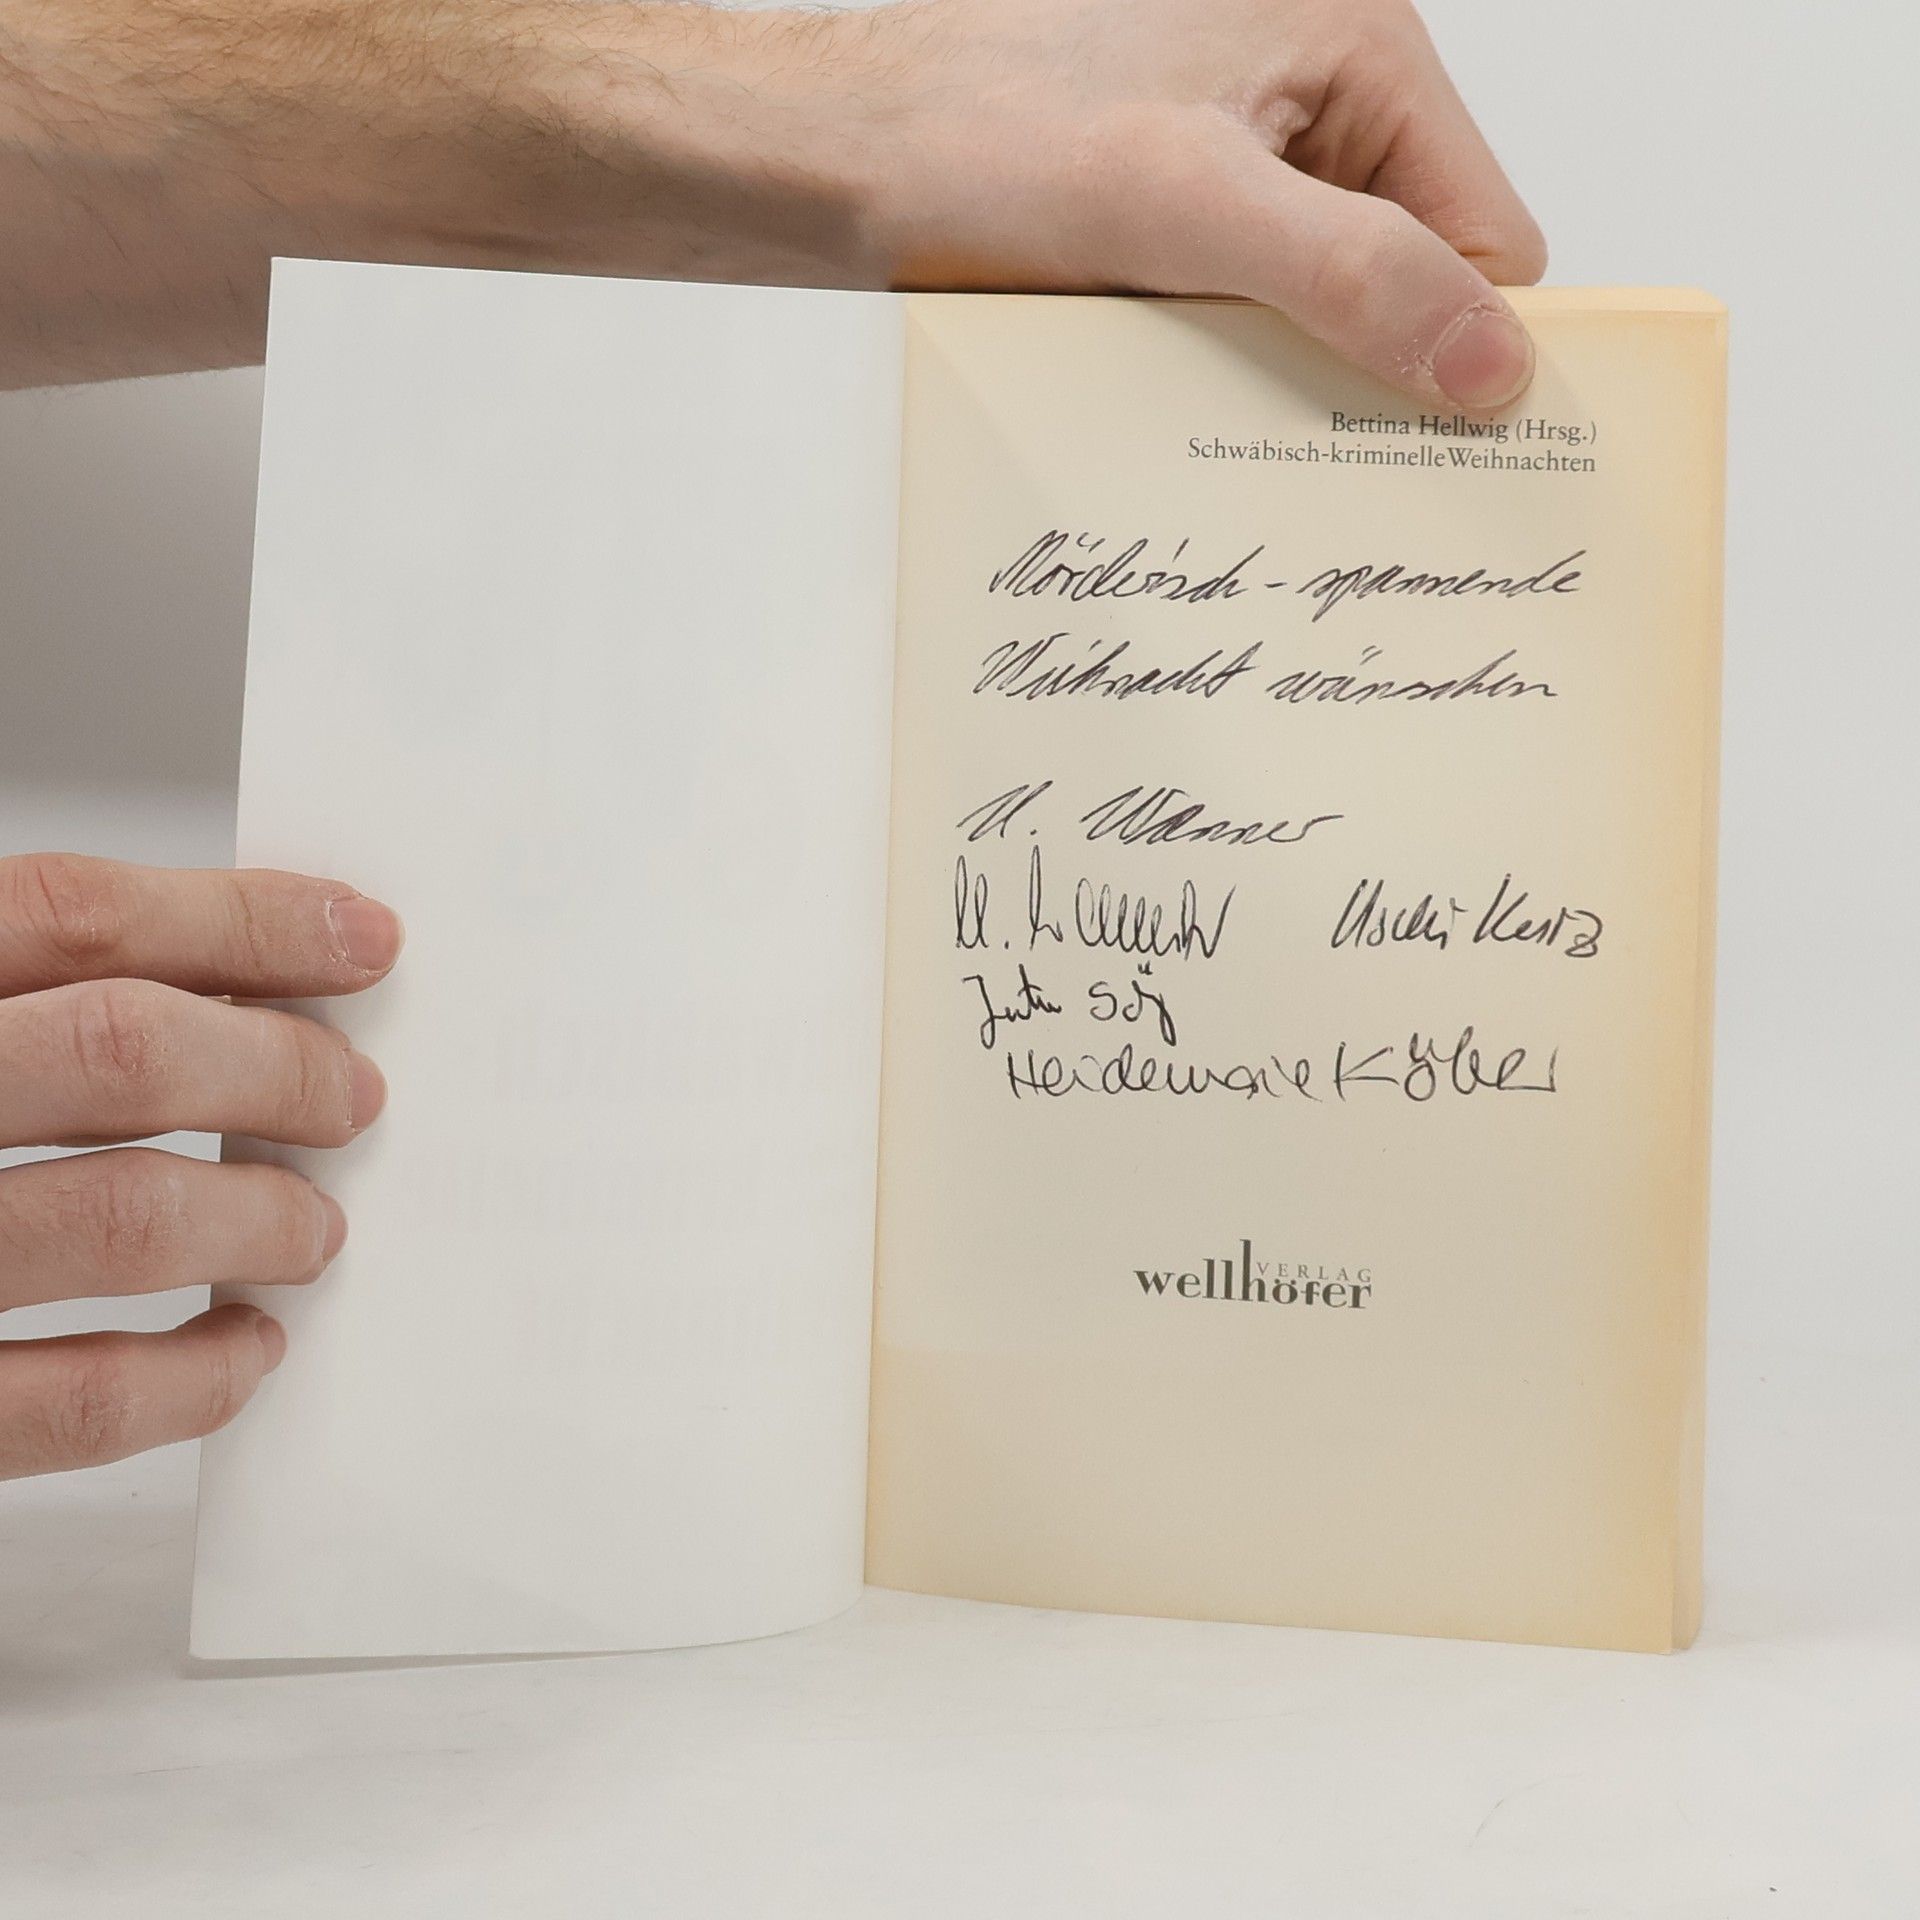 Bettina Hellwig (Hrsg.)
Schwäbisch-kriminelle Weihnachten
Mörderisch - spannende
Weihnacht wünschen
U. Wanner
Uschi Kurz
Jutta
Heidemarie Köber
wellhöfer
VERLAG